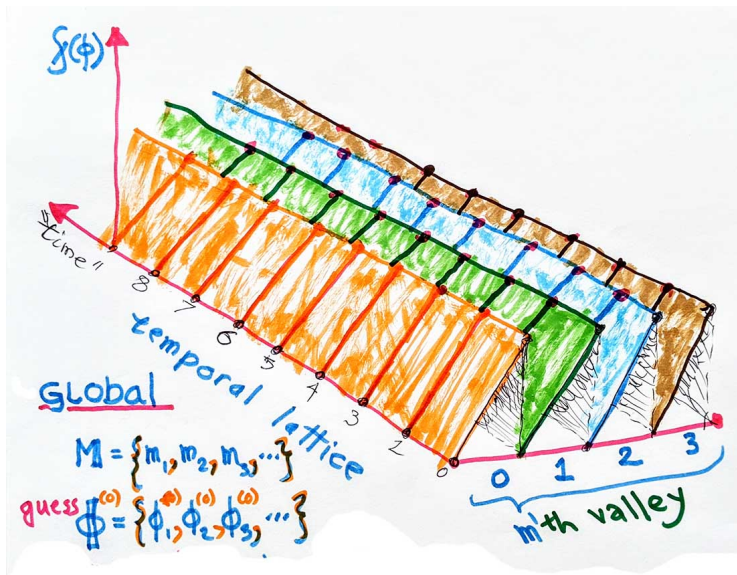 f(ϕ)
"time"
8
7
6
5
4
3
2
0
temporal lattice
0 1 2 3
m'th valley
GLOBAL
M = {m₁, m₂, m₃, ...}
guess ϕ⁽⁰⁾ = {ϕ₁⁽⁰⁾, ϕ₂⁽⁰⁾, ϕ₃⁽⁰⁾, ...}